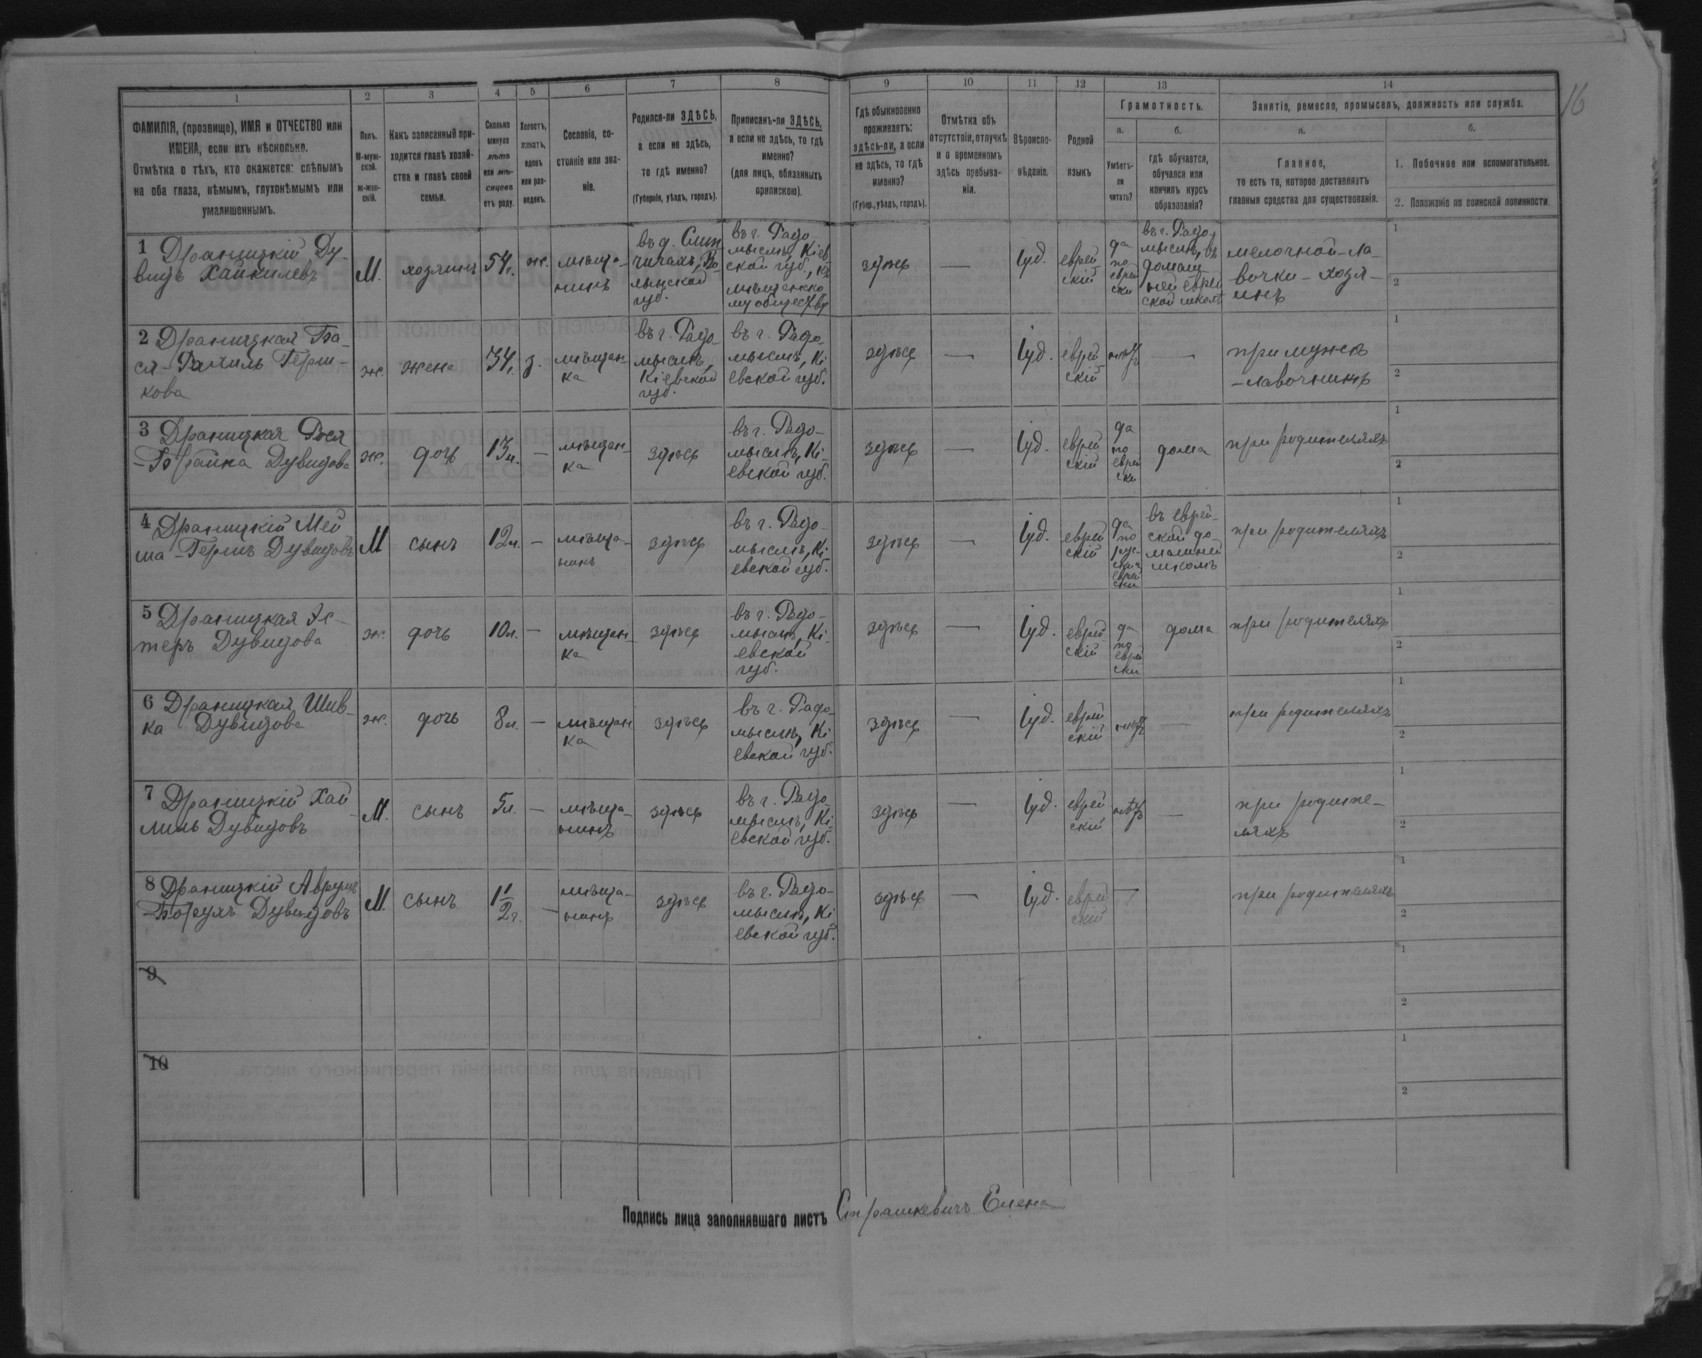 16
1 2 3 4 5 6 7 8 9 10 11 12 13 14
ФАМИЛІЯ, (прозвище), ИМЯ и ОТЧЕСТВО или
ИМЕНА, если ихъ нѣсколько.
Отмѣтка о тѣхъ, кто окажется: слѣпымъ
на оба глаза, нѣмымъ, глухонѣмымъ или
умалишеннымъ.
Полъ.
М-муж-
ской.
ж-жен-
скій.
Какъ записанный при-
ходится главѣ хозяй-
ства и главѣ своей
семьи.
Сколько
минуло
лѣтъ
или мѣ-
сяцевъ
отъ роду.
Холостъ,
женатъ,
вдовъ
или раз-
веденъ.
Сословіе, со-
стояніе или зва-
ніе.
Родился-ли ЗДѢСЬ,
а если не здѣсь,
то гдѣ именно?
(Губернія, уѣздъ, городъ).
Приписанъ-ли ЗДѢСЬ,
а если не здѣсь, то гдѣ
именно?
(для лицъ, обязанныхъ
припискою).
Гдѣ обыкновенно
проживаетъ:
здѣсь-ли, а если
не здѣсь, то гдѣ
именно?
(Губер., уѣздъ, городъ).
Отмѣтка объ
отсутствіи, отлучкѣ
и о временномъ
здѣсь пребыва-
ніи.
Вѣроиспо-
вѣданіе.
Родной
языкъ
Грамотность.
а.
Умѣетъ-
ли
читать?
б.
гдѣ обучается,
обучался или
кончилъ курсъ
образованія?
Занятіе, ремесло, промыселъ, должность или служба.
а.
Главное,
то есть то, которое доставляетъ
главныя средства для существованія.
б.
1. Побочное или вспомогательное.
2. Положеніе по воинской повинности.
1 Драницкій Ду-
видъ Хаймилевъ
М.
хозяинъ
54.
ж.
мѣща-
нинъ
въ д.
Волынской
губ.
въ г. Радо
мыслѣ, Кіев
ской губ., къ
мѣщанско
му обществу
здѣсь
—
Іуд.
еврей
скій
да
по
еврей
ски
въ г. Радо
мыслѣ, въ
домаш
ней еврей
ской школѣ
мелочной ла-
вочки - хозя-
инъ
1
2
2 Драницкая Ба-
ся-Рахиль Герш-
кова
ж.
жена
34.
з.
мѣщан-
ка
въ г. Радо-
мыслѣ,
Кіевской
губ.
въ г. Радо-
мыслѣ, Кі
евской губ.
здѣсь
—
Іуд.
еврей
скій
нѣтъ
—
при мужѣ
-лавочникѣ
1
2
3 Драницкая Рося
-Брайна Дувидова
ж.
дочь
13 л.
—
мѣщан-
ка
здѣсь
въ г. Радо-
мыслѣ, Кі-
евской губ.
здѣсь
—
Іуд.
еврей
скій
да
по
еврей
ски
дома
при родителяхъ
1
2
4 Драницкій Мей
ша-Гершъ Дувидовъ
М
сынъ
12 л.
—
мѣща-
нинъ
здѣсь
въ г. Радо-
мыслѣ, Кі-
евской губ.
здѣсь
—
Іуд.
еврей
скій
да
по
рус-
ски и
еврей
ски
въ еврей-
ской до-
машней
школѣ
при родителяхъ
1
2
5 Драницкая Эс-
теръ Дувидова
ж.
дочь
10 л.
—
мѣщан-
ка
здѣсь
въ г. Радо-
мыслѣ, Кі-
евской
губ.
здѣсь
—
Іуд.
еврей
скій
да
по
еврей
ски
дома
при родителяхъ
1
2
6 Драницкая Шив-
ка Дувидова
ж.
дочь
8 л.
—
мѣщан
ка
здѣсь
въ г. Радо-
мыслѣ, Кі
евской губ.
здѣсь
—
Іуд.
еврей
скій
нѣтъ
—
при родителяхъ
1
2
7 Драницкій Хай
миль Дувидовъ
М.
сынъ
5 л.
—
мѣща-
нинъ
здѣсь
въ г. Радо
мыслѣ, Кі
евской губ.
здѣсь
—
Іуд.
еврей
скій
нѣтъ
—
при родите-
ляхъ
1
2
8 Драницкій Аврумъ
-Борухъ Дувидовъ
М.
сынъ
1 1/2 г.
—
мѣща-
нинъ
здѣсь
въ г. Радо-
мыслѣ, Кі
евской губ.
здѣсь
—
Іуд.
еврей
скій
—
при родителяхъ
1
2
9
1
2
10
1
2
Подпись лица заполнявшаго листъ Страшкевичъ Елена